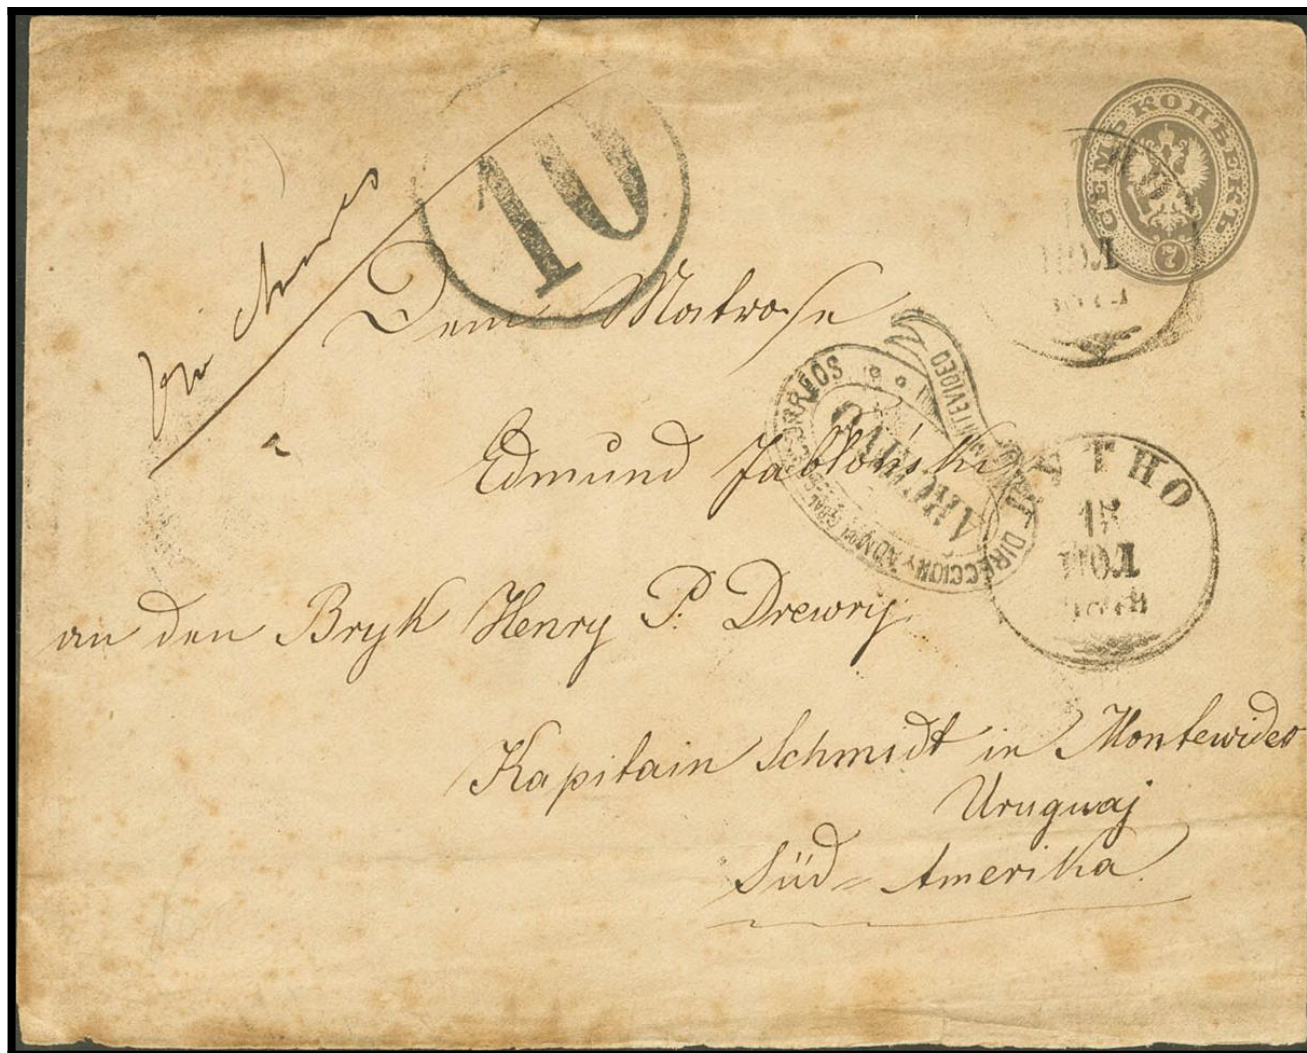 СЕМЬ КОПѢЕКЪ
7
10
ІЮЛ
Dem Matrose
DIRECCION Y ADMON GRAL DE CORREOS
MONTEVIDEO
ARCHIVO
Edmund Jabłoński
15
ІЮЛ
an den Bryk Henry P. Drewry.
Kapitain Schmidt in Montewideo
Uruguaj
Süd-Amerika.